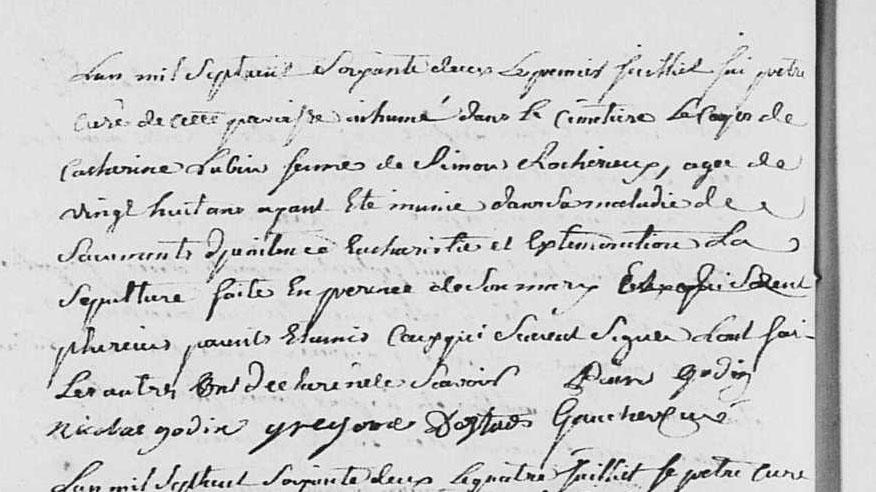 Lan mil Sept cent Soixante deux Le premier juillet jai pretre
curé de cette paroisse inhumé dans le Cimetiere Le Corps de
Catharine Lubin feme de Simon Rochereux, agée de
vingt huit ans ayant Eté munie dans Sa maladie de
Sacrements de penitence Eucharistie et Extremonction La
Sepulture faite En presence de Son mary Et
plusieurs parents Et amis Ceux qui Scavent Signer Lont fai
Les autres Ont declaré ne le Scavoir Godin
Nicolas godin gregoire Gaucher Curé
Lan mil Sept cent Soixante deux Le quatre Juillet Je pretre curé